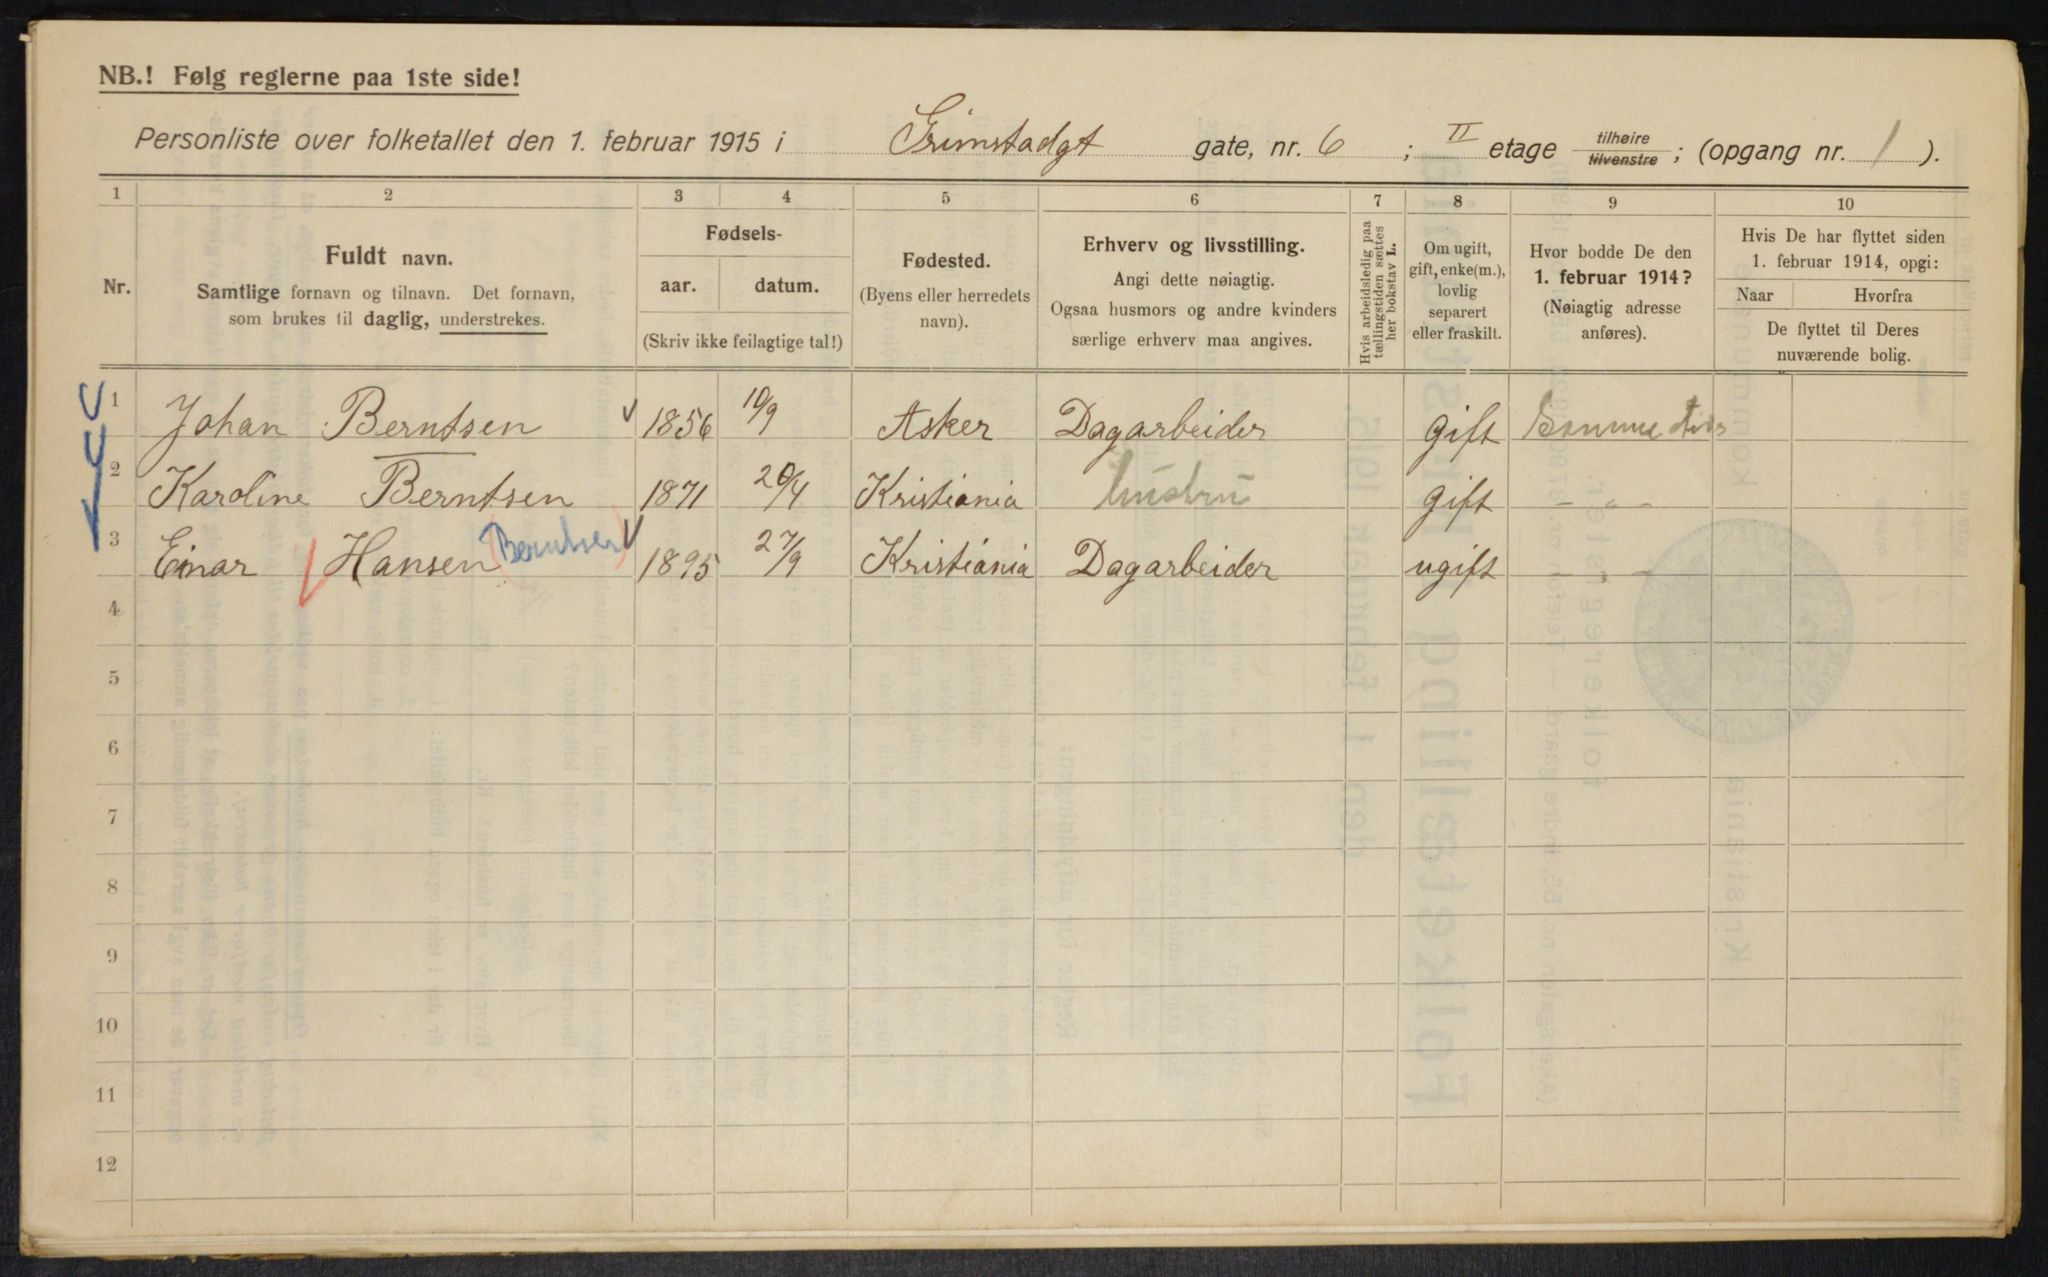 NB.! Følg reglerne paa 1ste side!
Personliste over folketallet den 1. februar 1915 i Grimstadgt gate, nr. 6 ; II etage tilhøire tilvenstre ; (opgang nr. 1 ).
1 2 3 4 5 6 7 8 9 10
Nr.
Fuldt navn.
Samtlige fornavn og tilnavn. Det fornavn,
som brukes til daglig, understrekes.
Fødsels-
aar. datum.
(Skriv ikke feilagtige tal!)
Fødested.
(Byens eller herredets
navn).
Erhverv og livsstilling.
Angi dette nøiagtig.
Ogsaa husmors og andre kvinders
særlige erhverv maa angives.
Hvis arbeidsledig paa
tællingstiden sættes
her bokstav L.
Om ugift,
gift, enke(m.),
lovlig
separert
eller fraskilt.
Hvor bodde De den
1. februar 1914?
(Nøiagtig adresse
anføres).
Hvis De har flyttet siden
1. februar 1914, opgi:
Naar Hvorfra
De flyttet til Deres
nuværende bolig.
1 Johan Berntsen 1856 10/9 Asker Dagarbeider gift Samme sted
2 Karoline Berntsen 1871 20/4 Kristiania husfru gift — " —
3 Einar Hansen (Berntsen) 1895 27/9 Kristiania Dagarbeider ugift — " —
4
5
6
7
8
9
10
11
12